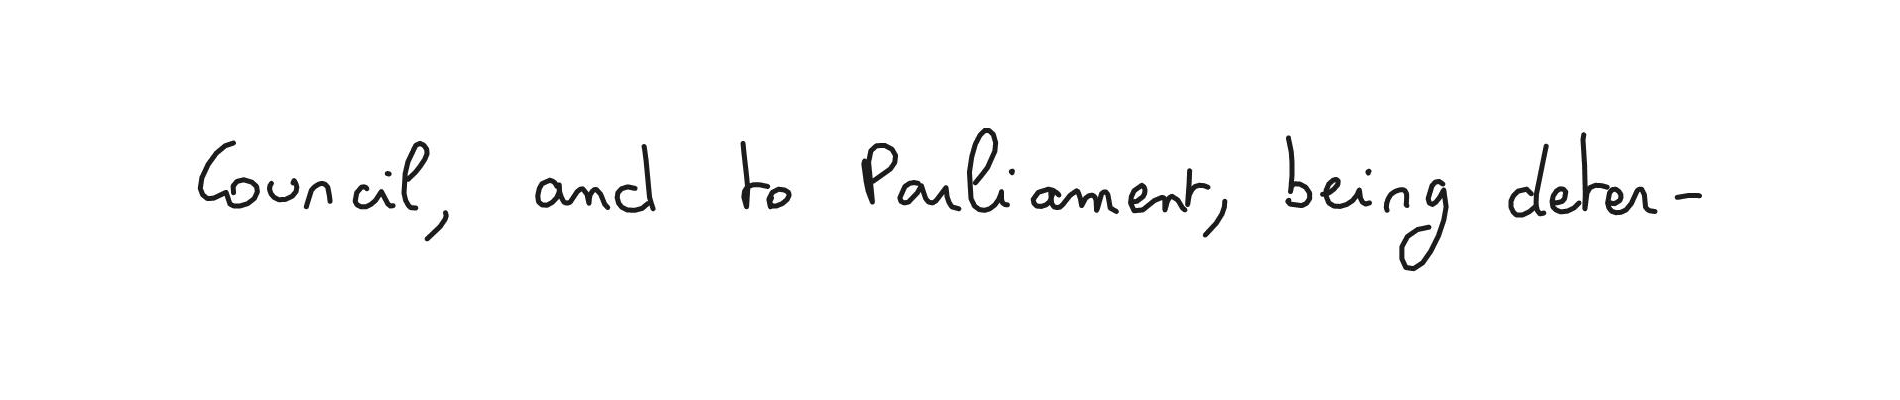 Council, and to Parliament, being deter-